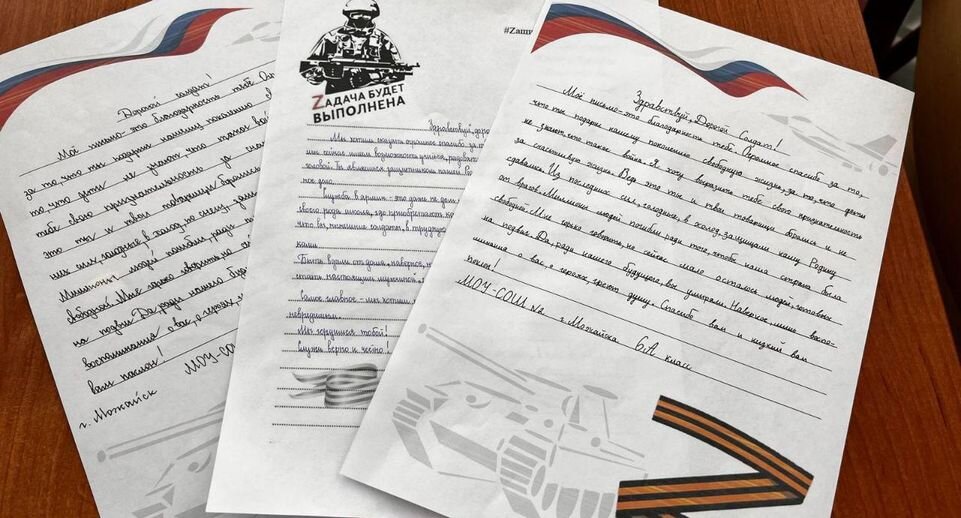 Дорогой солдат!
Моё письмо-это благодарность тебе
за то, что ты подарил нашему поколению
то, что дети не знают, что такое
тебе свою признательность за
это ты и твои товарищи брались
них сил, голодные, в холод,
людей погибли, ради
свободной. Мне горько говорить, но
на подвиг. Да, ради нашего
воспоминания о вас, о героях,
вам поклон! МОУ-СО
г. Можайск
#Zащи
ZАДАЧА БУДЕТ
ВЫПОЛНЕНА
Здравствуй, доро
Мы хотим сказать огромное спасибо за
мы сейчас имеем возможность учиться, радоват
головой. Ты являешься защитником нашей
Служба в армии - это даже не
своего рода школа, где приобретают
что вы, нынешние солдаты, в трудную
нами.
Быть вдали от дома, наверное,
стать настоящим мужчиной,
Самое главное - мы хотим,
невредимым.
Мы гордимся тобой!
Служи верно и честно!
Здравствуй, Дорогой Солдат!
Моё письмо-это благодарность тебе. Огромное спасибо за то,
что ты подарил нашему поколению свободную жизнь, за то, что дети
не знают, что такое война. Я хочу выразить тебе свою признательность
за счастливую жизнь. Ведь это ты и твои товарищи брались и не
сдавались. Из последних сил, голодные, в холод, защищали нашу Родину
от врагов. Миллионы людей погибли ради того, чтобы наша страна была
свободной. Мне горько говорить, но сейчас мало осталось людей, готовых
на подвиг. Да, ради нашего будущего, вы умирали. Наверное, лишь воспо-
минания о вас, о героях, греют душу. Спасибо вам и низкий вам
поклон!
МОУ-СОШ г. Можайска 6 А класс